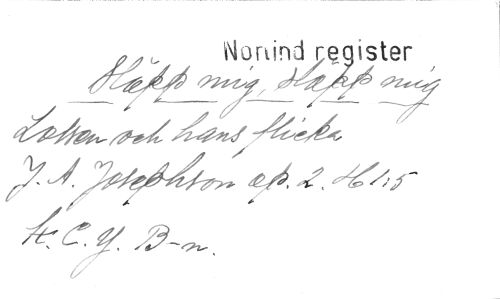 Nonind register
Släpp mig, släpp mig
Lotsen och hans flicka
J. A. Josephson op. 2. H 1:5
H. C. Y. B-n.